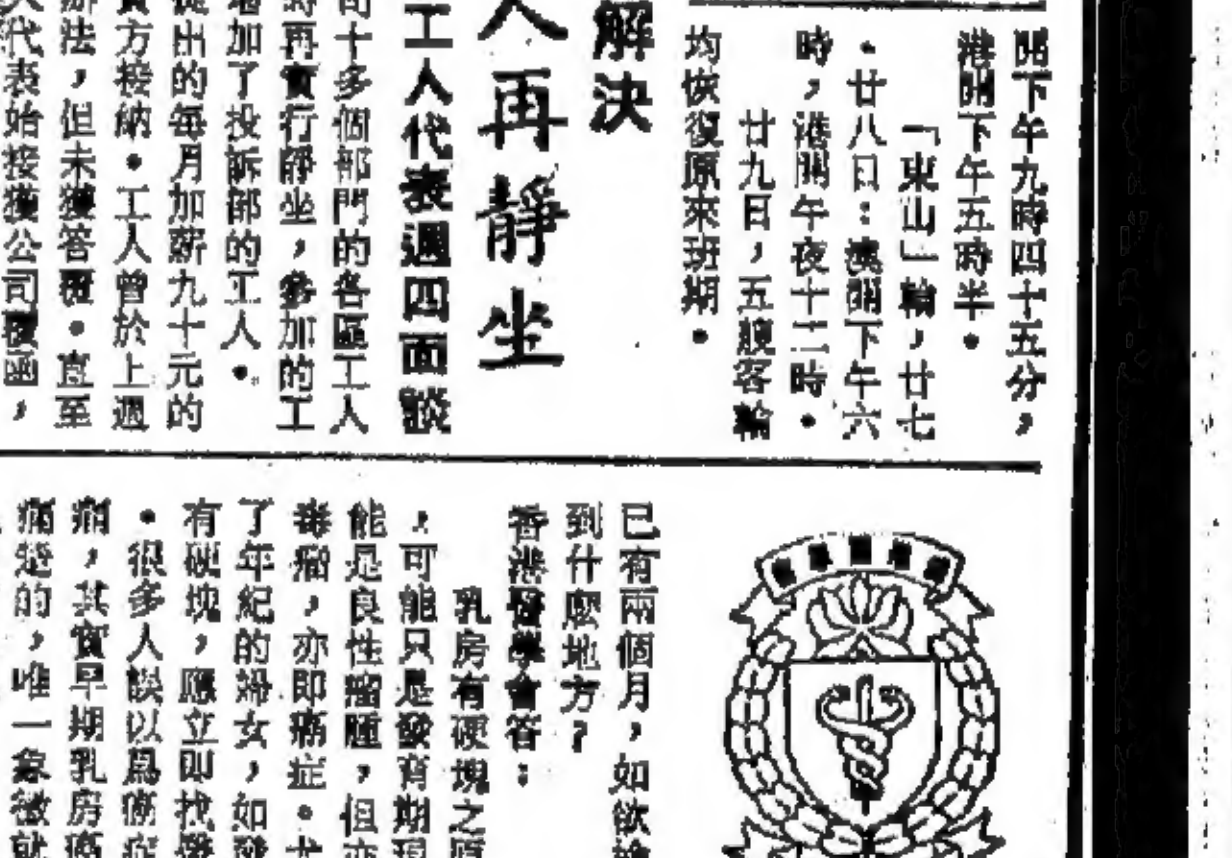 開下午九時四十五分，
港開下午五時半。
「東山」輪，廿七
。廿八日：澳開下午六
時，港開午夜十二時。
廿九日，五艘客輪
均恢復原來班期。
解決
人再靜坐
工人代表週四面談
司十多個部門的各區工人
時再實行靜坐，參加的工
增加了投訴部的工人。
提出的每月加薪九十元的
資方接納。工人曾於上週
辦法，但未獲答覆。直至
人代表始接獲公司覆函，
已有兩個月，如欲
到什麼地方？
香港醫學會答：
乳房有硬塊之原
，可能只是發育期現
能是良性瘤腫，但亦
毒瘤，亦即癌症。尤
了年紀的婦女，如發
有硬塊，應立即找醫
。很多人誤以爲癌症
痛，其實早期乳房癌
痛楚的，唯一象徵就